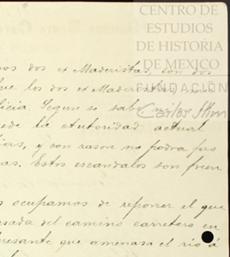 CENTRO DE
ESTUDIOS
DE HISTORIA
DE MEXICO
FUNDACIÓN
Carlos Slim
os dos ex Maderistas, con dos
que los dos ex Maderistas
licia. Segun se sabe
ede la Autoridad actual
cias, y con razon no podra pas
as. Estos escandalos son frecu
s ocupamos de reponer el que
sada del camino carretero en
eresante que amenasa el rio á